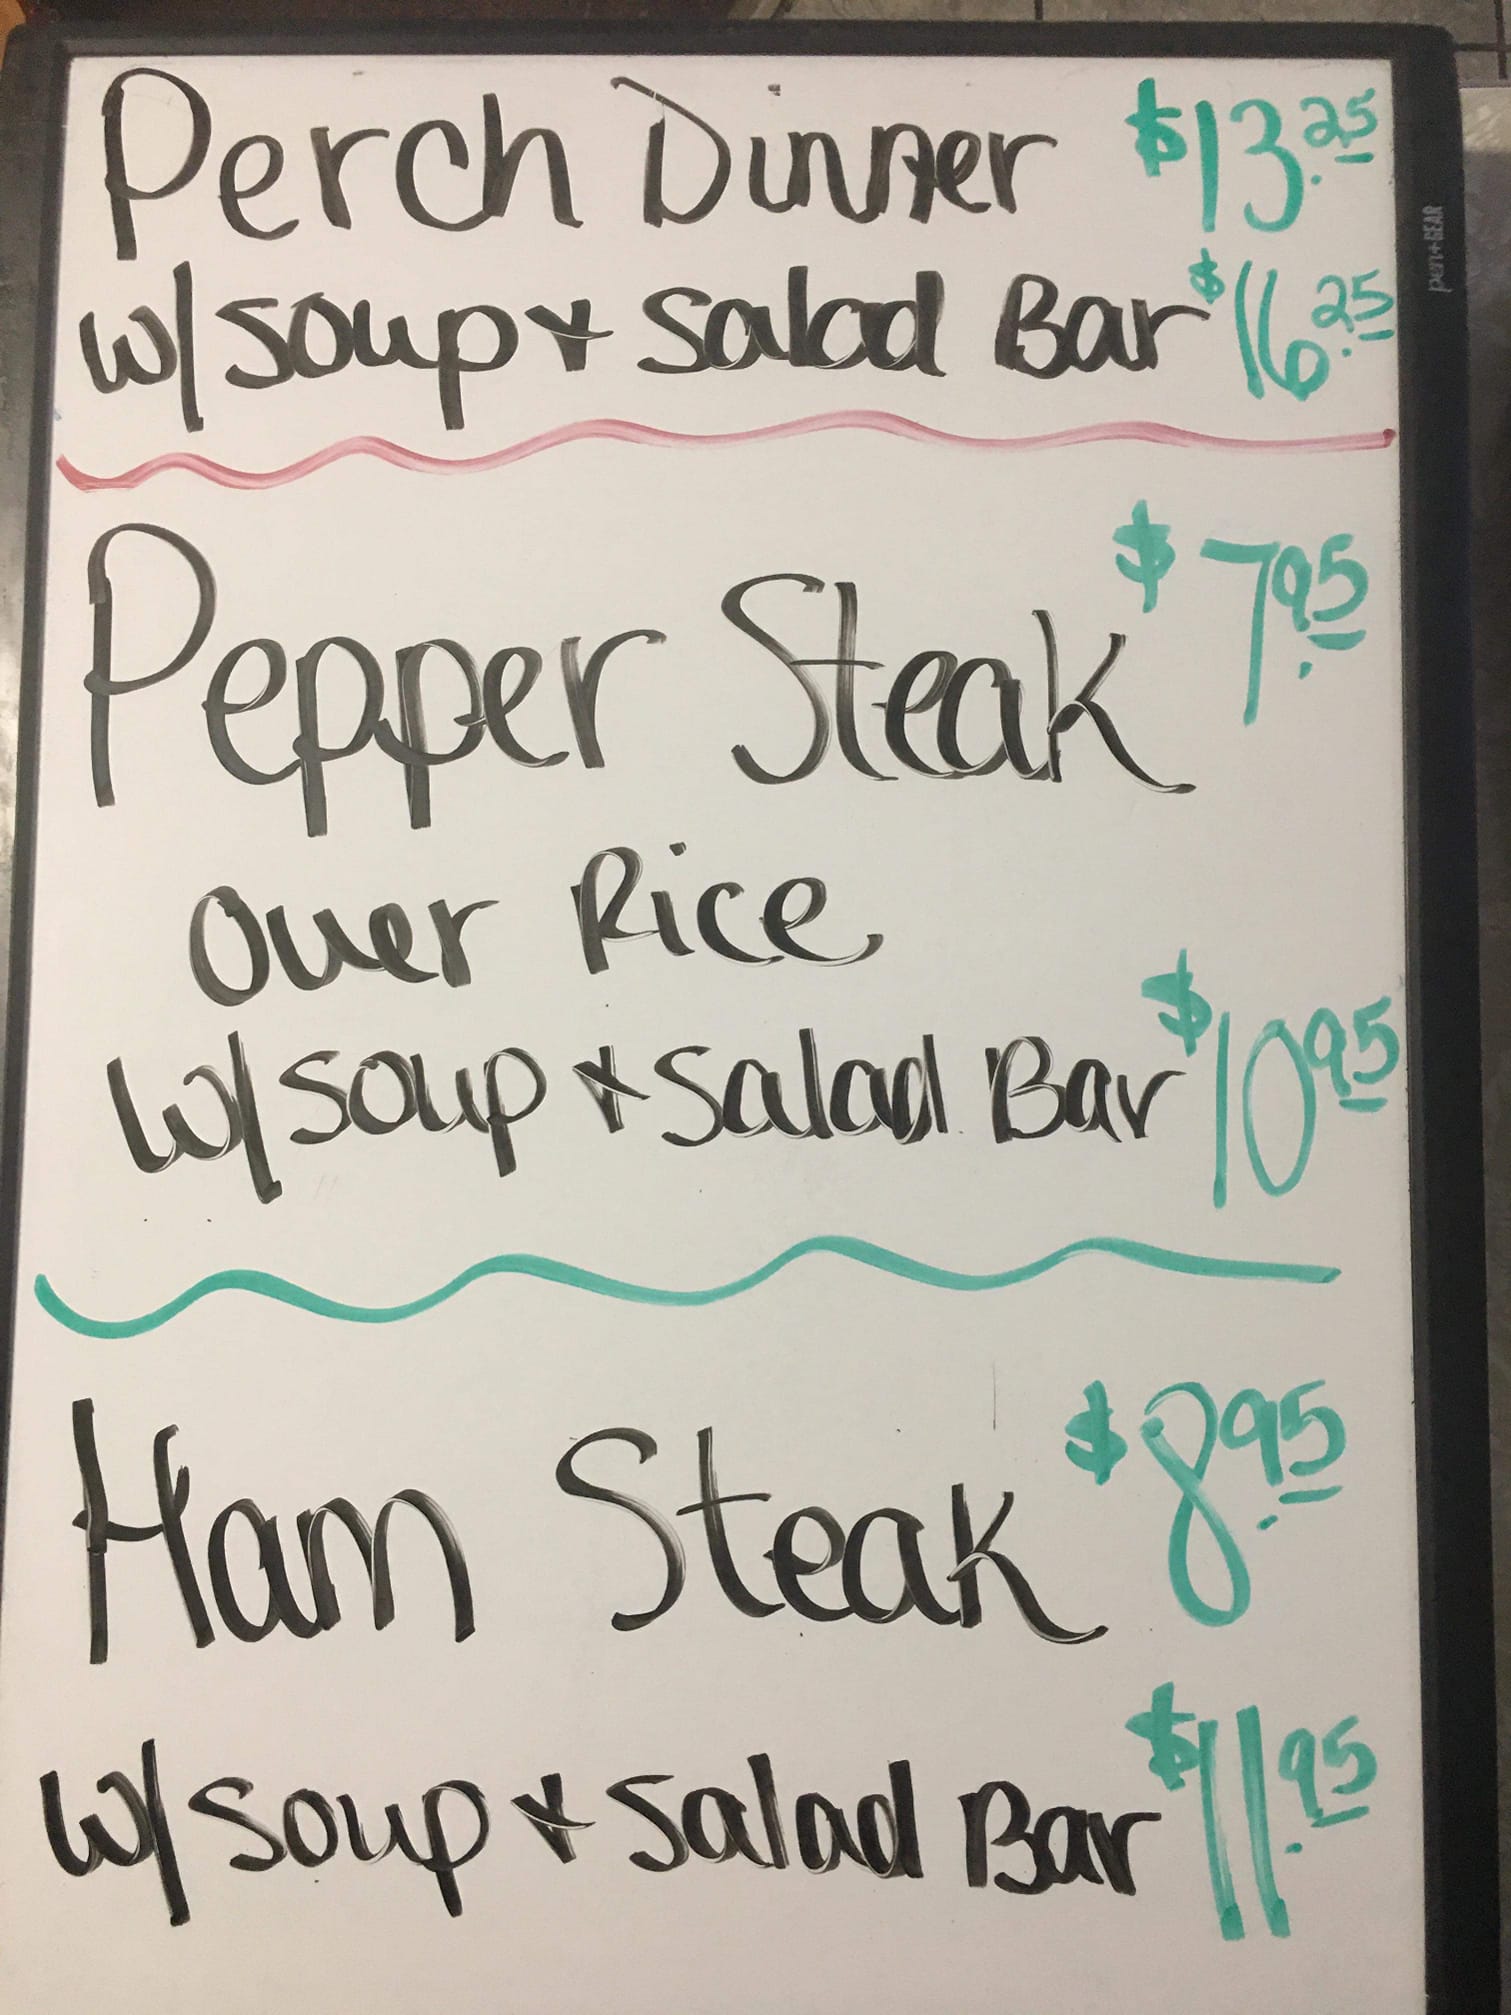 Perch Dinner $13.25
w/ Soup & Salad Bar $16.25
Pepper Steak $7.95
Over Rice
w/ Soup & Salad Bar $10.95
Ham Steak $8.95
w/ Soup & Salad Bar $11.95
pen+GEAR